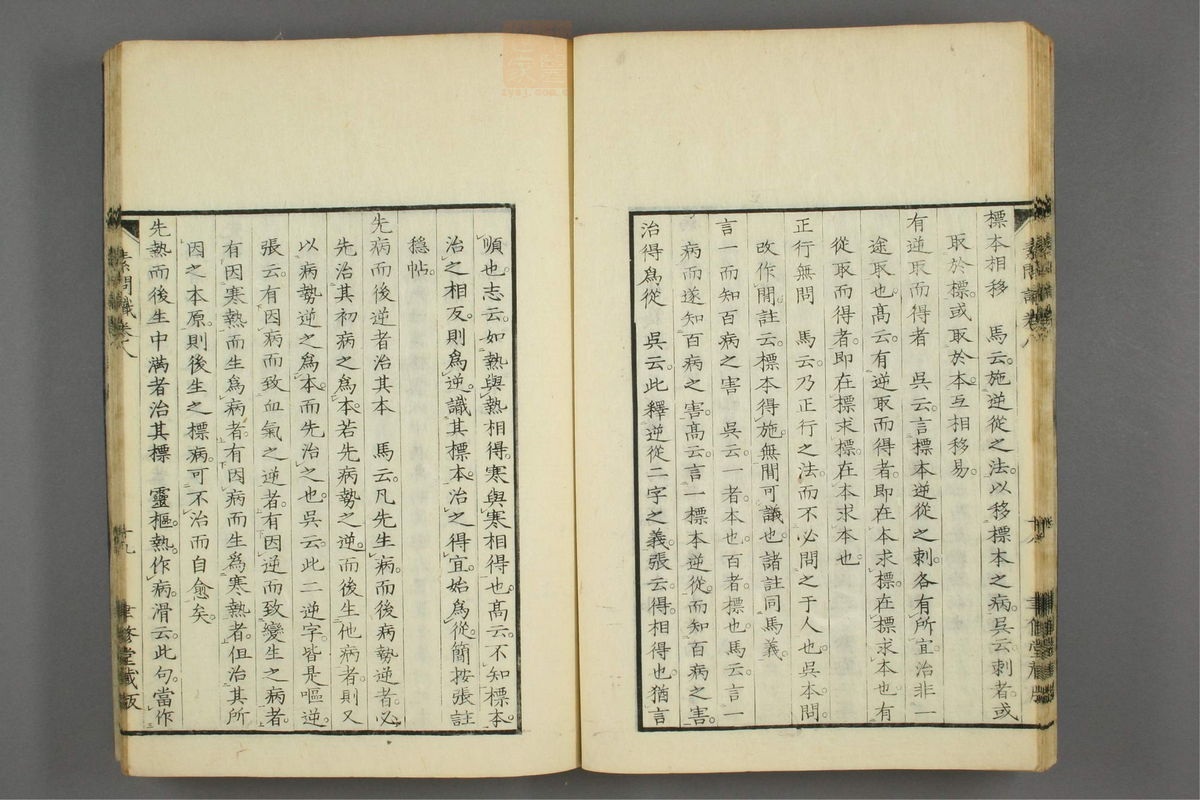 標本相移　馬云。施逆從之法。以移標本之病。吳云。刺者或
取於標。或取於本。互相移易。
有逆取而得者　吳云。言標本逆從之刺。各有所宜。治非一
途取也。髙云。有逆取而得者。即在本求標。在標求本也。有
從取而得者。即在標求標。在本求本也。
正行無問　馬云。乃正行之法。而不必問之于人也。吳本。問
改作間。註云。標本得施。無間可議也。諸註同馬義。
言一而知百病之害　吳云。一者。本也。百者。標也。馬云。言一
病而遂知百病之害。髙云。言一標本逆從。而知百病之害。
治得爲從　吳云。此釋逆從二字之義。張云。得。相得也。猶言
素問識卷八
順也。志云。如熱與熱相得。寒與寒相得也。髙云。不知標本。
治之相反。則爲逆。識其標本。治之得宜。始爲從。簡按張註
穩帖。
先病而後逆者治其本　馬云。凡先生病。而後病勢逆者。必
先治其初病之爲本。若先病勢之逆。而後生他病者。則又
以病勢逆之爲本。而先治之也。吳云。此二逆字。皆是嘔逆。
張云。有因病而致血氣之逆者。有因逆而致變生之病者。
有因寒熱而生爲病者。有因病而生爲寒熱者。但治其所
因之本原。則後生之標病。可不治而自愈矣。
先熱而後生中滿者治其標　靈樞。熱。作病。滑云。此句。當作
素問識卷八
十九
聿修堂藏板